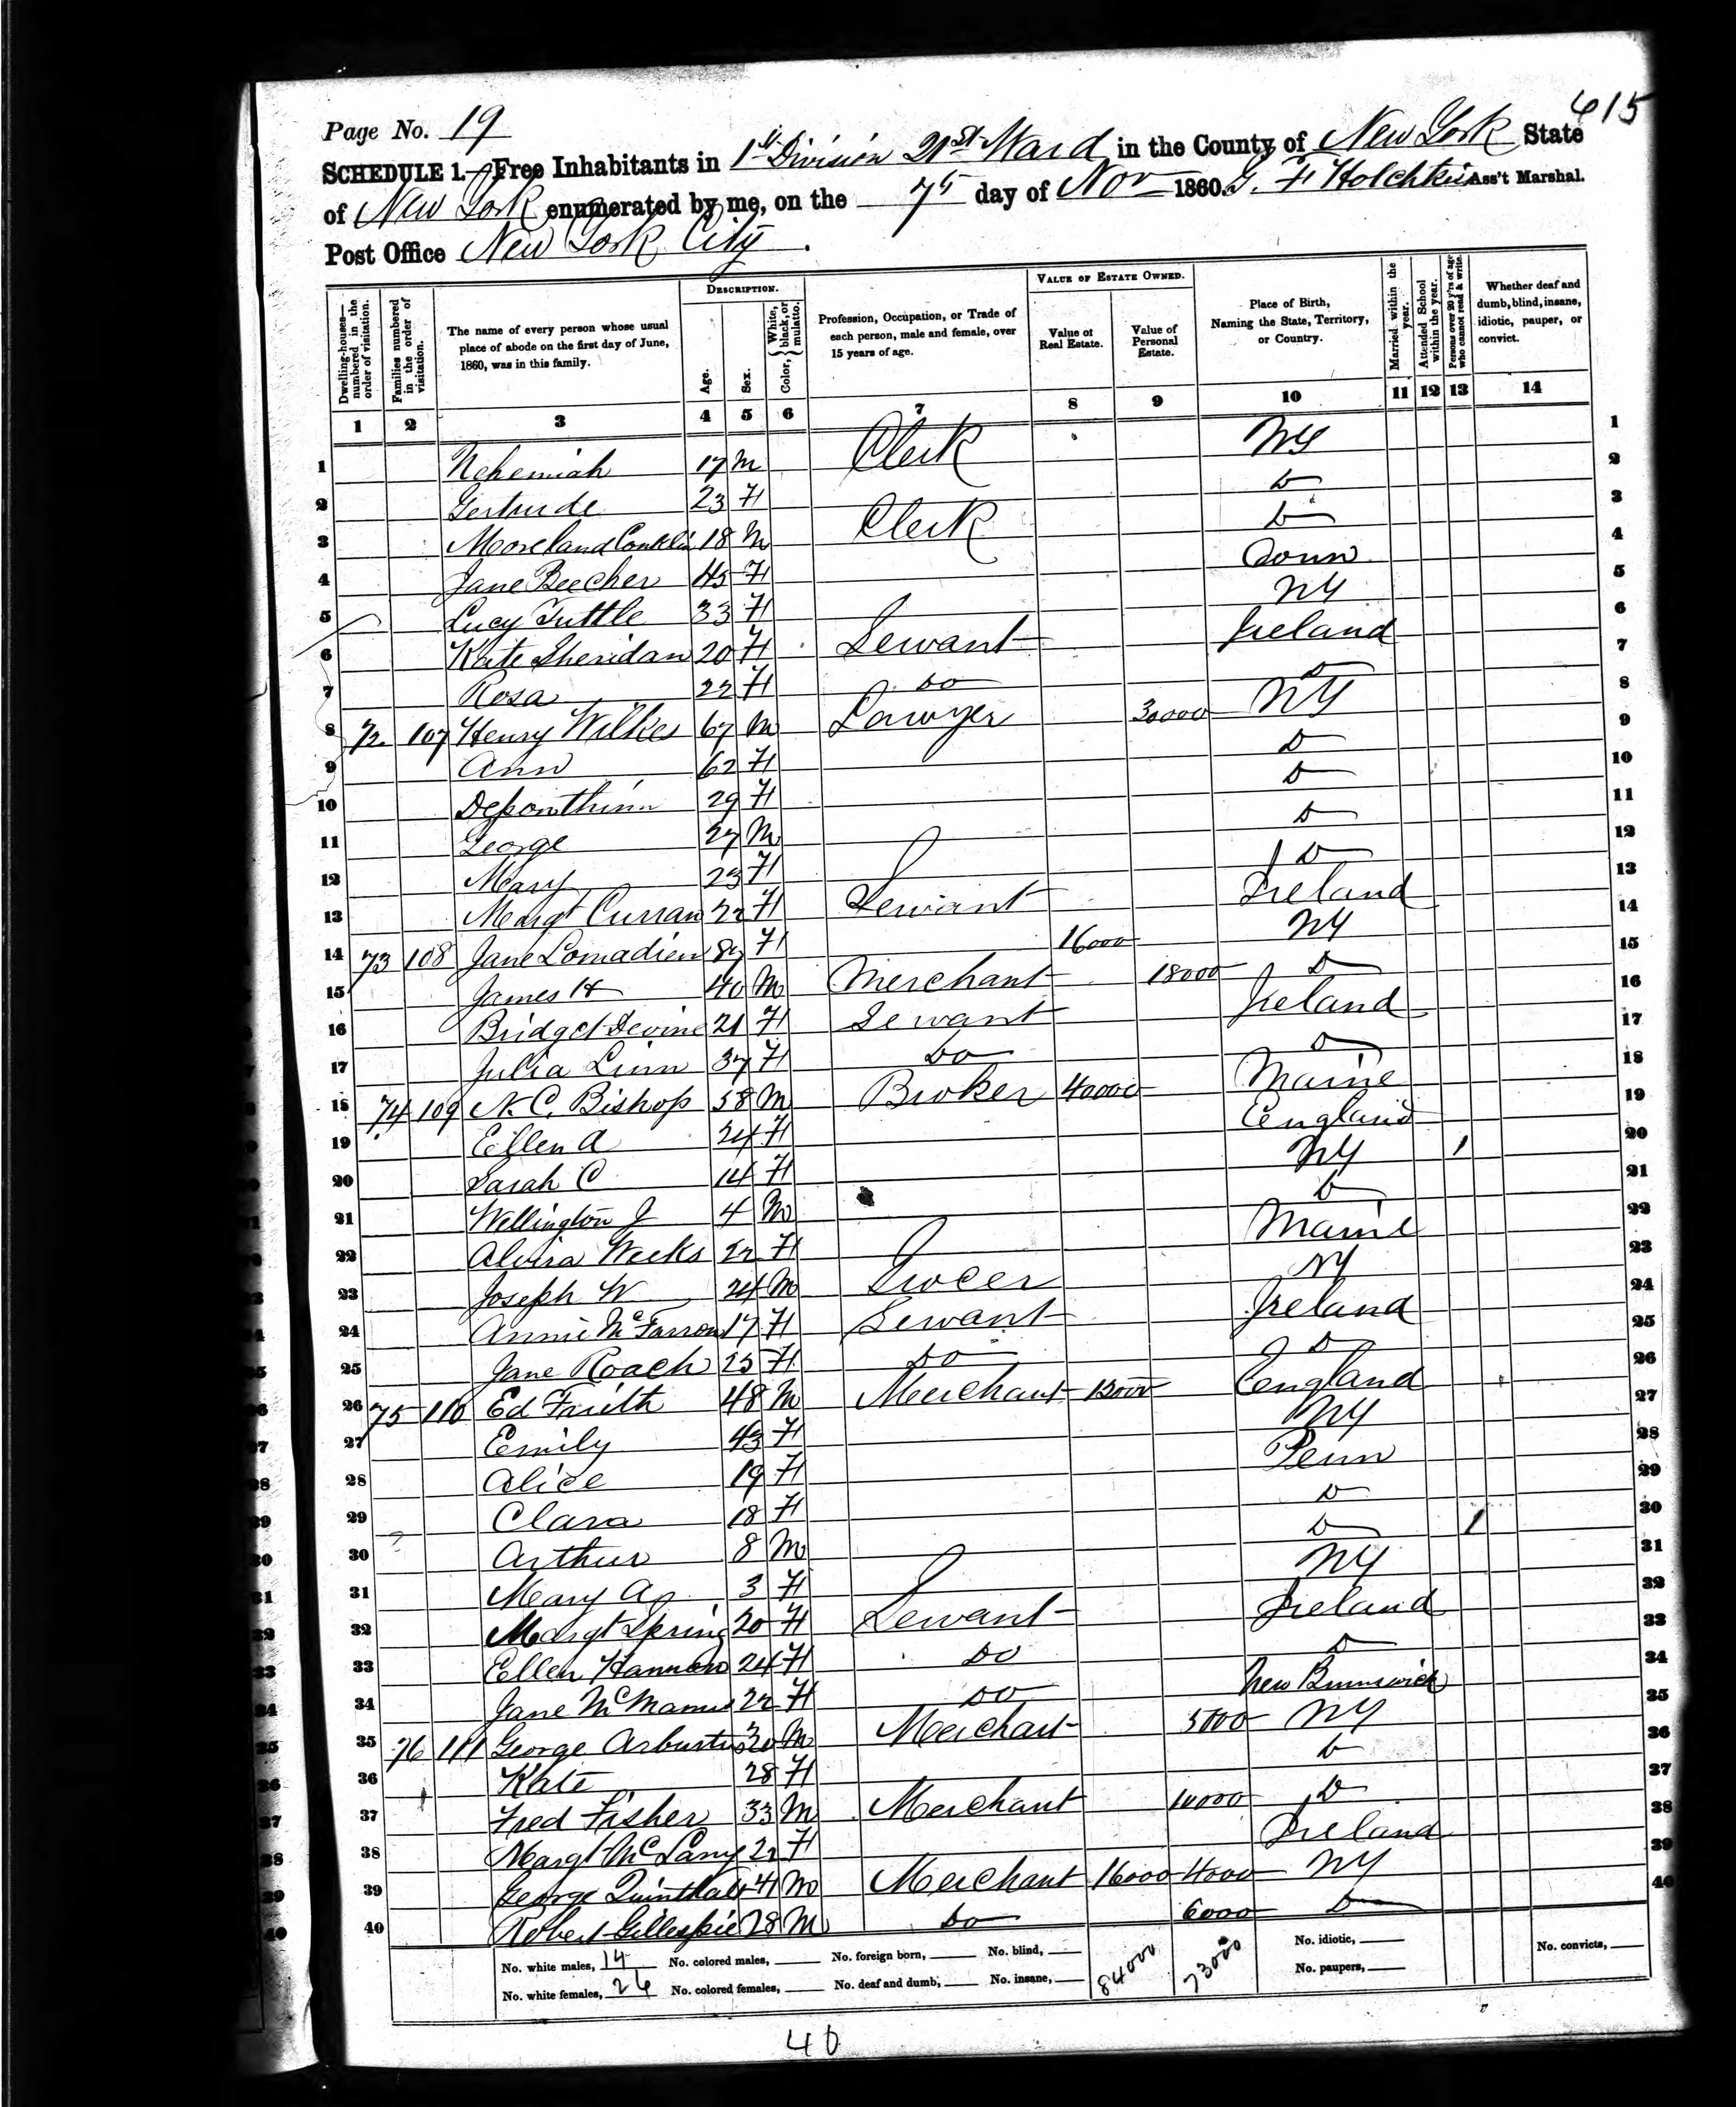 615
Page No. 19
SCHEDULE 1.—Free Inhabitants in 1st Division 21st Ward in the County of New York State
of New York enumerated by me, on the 7th day of Nov 1860. G. F. Hotchkiss Ass't Marshal.
Post Office New York City.
Dwelling-houses—numbered in the order of visitation.
Families numbered in the order of visitation.
The name of every person whose usual place of abode on the first day of June, 1860, was in this family.
DESCRIPTION.
Age.
Sex.
Color, { White, black, or mulatto.
Profession, Occupation, or Trade of each person, male and female, over 15 years of age.
VALUE OF ESTATE OWNED.
Value of Real Estate.
Value of Personal Estate.
Place of Birth, Naming the State, Territory, or Country.
Married within the year.
Attended School within the year.
Persons over 20 y'rs of age who cannot read & write.
Whether deaf and dumb, blind, insane, idiotic, pauper, or convict.
1 2 3 4 5 6 7 8 9 10 11 12 13 14
1 Nehemiah 17 M Clerk NY 1
2 Gertrude 23 F D 2
3 Moreland Conklin 18 M Clerk D 3
4 Jane Beecher 45 F Conn 4
5 Lucy Tuttle 33 F NY 5
6 Kate Sheridan 20 F Servant Ireland 6
7 Rosa 22 F Do D 7
8 72 107 Henry Wilkes 67 M Lawyer 30000 NY 8
9 Ann 62 F D 9
10 29 F D 10
11 George 27 M D 11
12 Mary 23 F D 12
13 Margt Curran 22 F Servant Ireland 13
14 73 108 Jane 16000 NY 14
15 James H 40 M Merchant 18000 D 15
16 Bridget Devine 21 F Servant Ireland 16
17 Julia Linn 37 F Do D 17
18 74 109 N. C. Bishop 38 M Broker 40000 Maine 18
19 Ellen A 24 F England 19
20 Sarah C 14 F NY 1 20
21 Wellington J 4 M D 21
22 Alvira Weeks 22 F Maine 22
23 Joseph W 24 M Grocer NY 23
24 Annie 17 F Servant Ireland 24
25 Jane Roach 25 F Do D 25
26 75 110 Ed Frith 48 M Merchant England 26
27 Emily 43 F NY 27
28 Alice 19 F Penn 28
29 Clara 18 F D 29
30 Arthur 8 M D 1 30
31 Mary A 3 F NY 31
32 Margt Spring 20 F Servant Ireland 32
33 Ellen Hannan 24 F Do D 33
34 Jane McManus 22 F Do New Brunswick 34
35 76 111 George 30 M Merchant 5000 NY 35
36 Kate 28 F D 36
37 Fred Fisher 33 M Merchant 10000 D 37
38 Margt 22 F Ireland 38
39 George 41 M Merchant 16000 4000 NY 39
40 Robert Gillespie 28 M Do 6000 D 40
No. white males, 14 No. colored males, No. foreign born, No. blind, 84000 73000 No. idiotic, No. convicts,
No. white females, 26 No. colored females, No. deaf and dumb, No. insane, No. paupers,
40